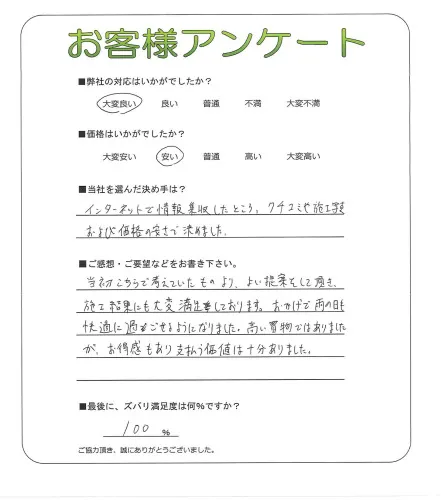 お客様アンケート
■弊社の対応はいかがでしたか？
大変良い 良い 普通 不満 大変不満
■価格はいかがでしたか？
大変安い 安い 普通 高い 大変高い
■当社を選んだ決め手は？
インターネットで情報集収したところ、クチコミや施工実績
および価格の安さで決めました。
■ご感想・ご要望などをお書き下さい。
当初こちらで考えていたものより、よい提案をして頂き、
施工結果にも大変満足しております。おかげで雨の日も
快適に過ごせるようになりました。高い買物ではありました
が、お得感もあり支払う価値は十分ありました。
■最後に、ズバリ満足度は何%ですか？
100 %
ご協力頂き、誠にありがとうございました。